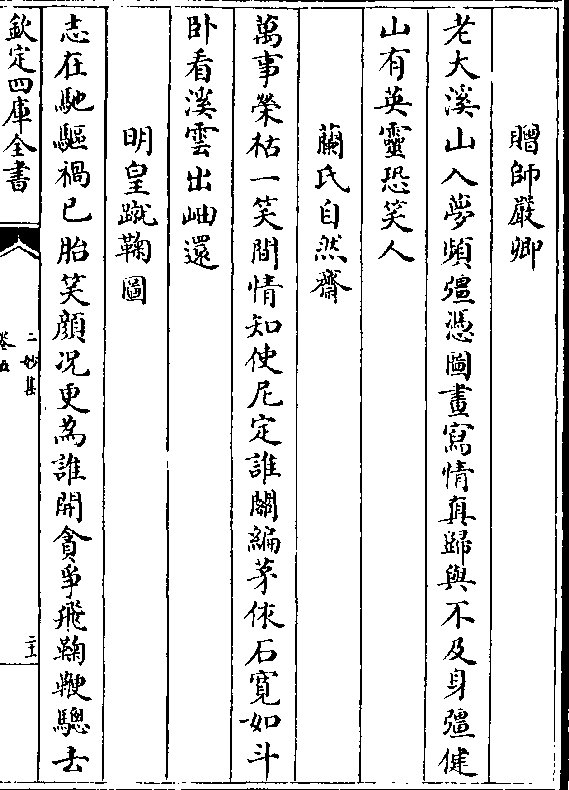 贈師嚴卿
老大溪山入夢頻彊憑圖畫寫情真歸與不及身彊健
山有英靈恐笑人
蘭氏自然齋
萬事榮枯一笑間情知使尼定誰關編茅依石寛如斗
卧看溪雲出岫還
明皇蹴鞠圖
志在馳驅禍已胎笑顔况更為誰開貪爭飛鞠鞭驄去
欽定四庫全書
二妙集
卷五